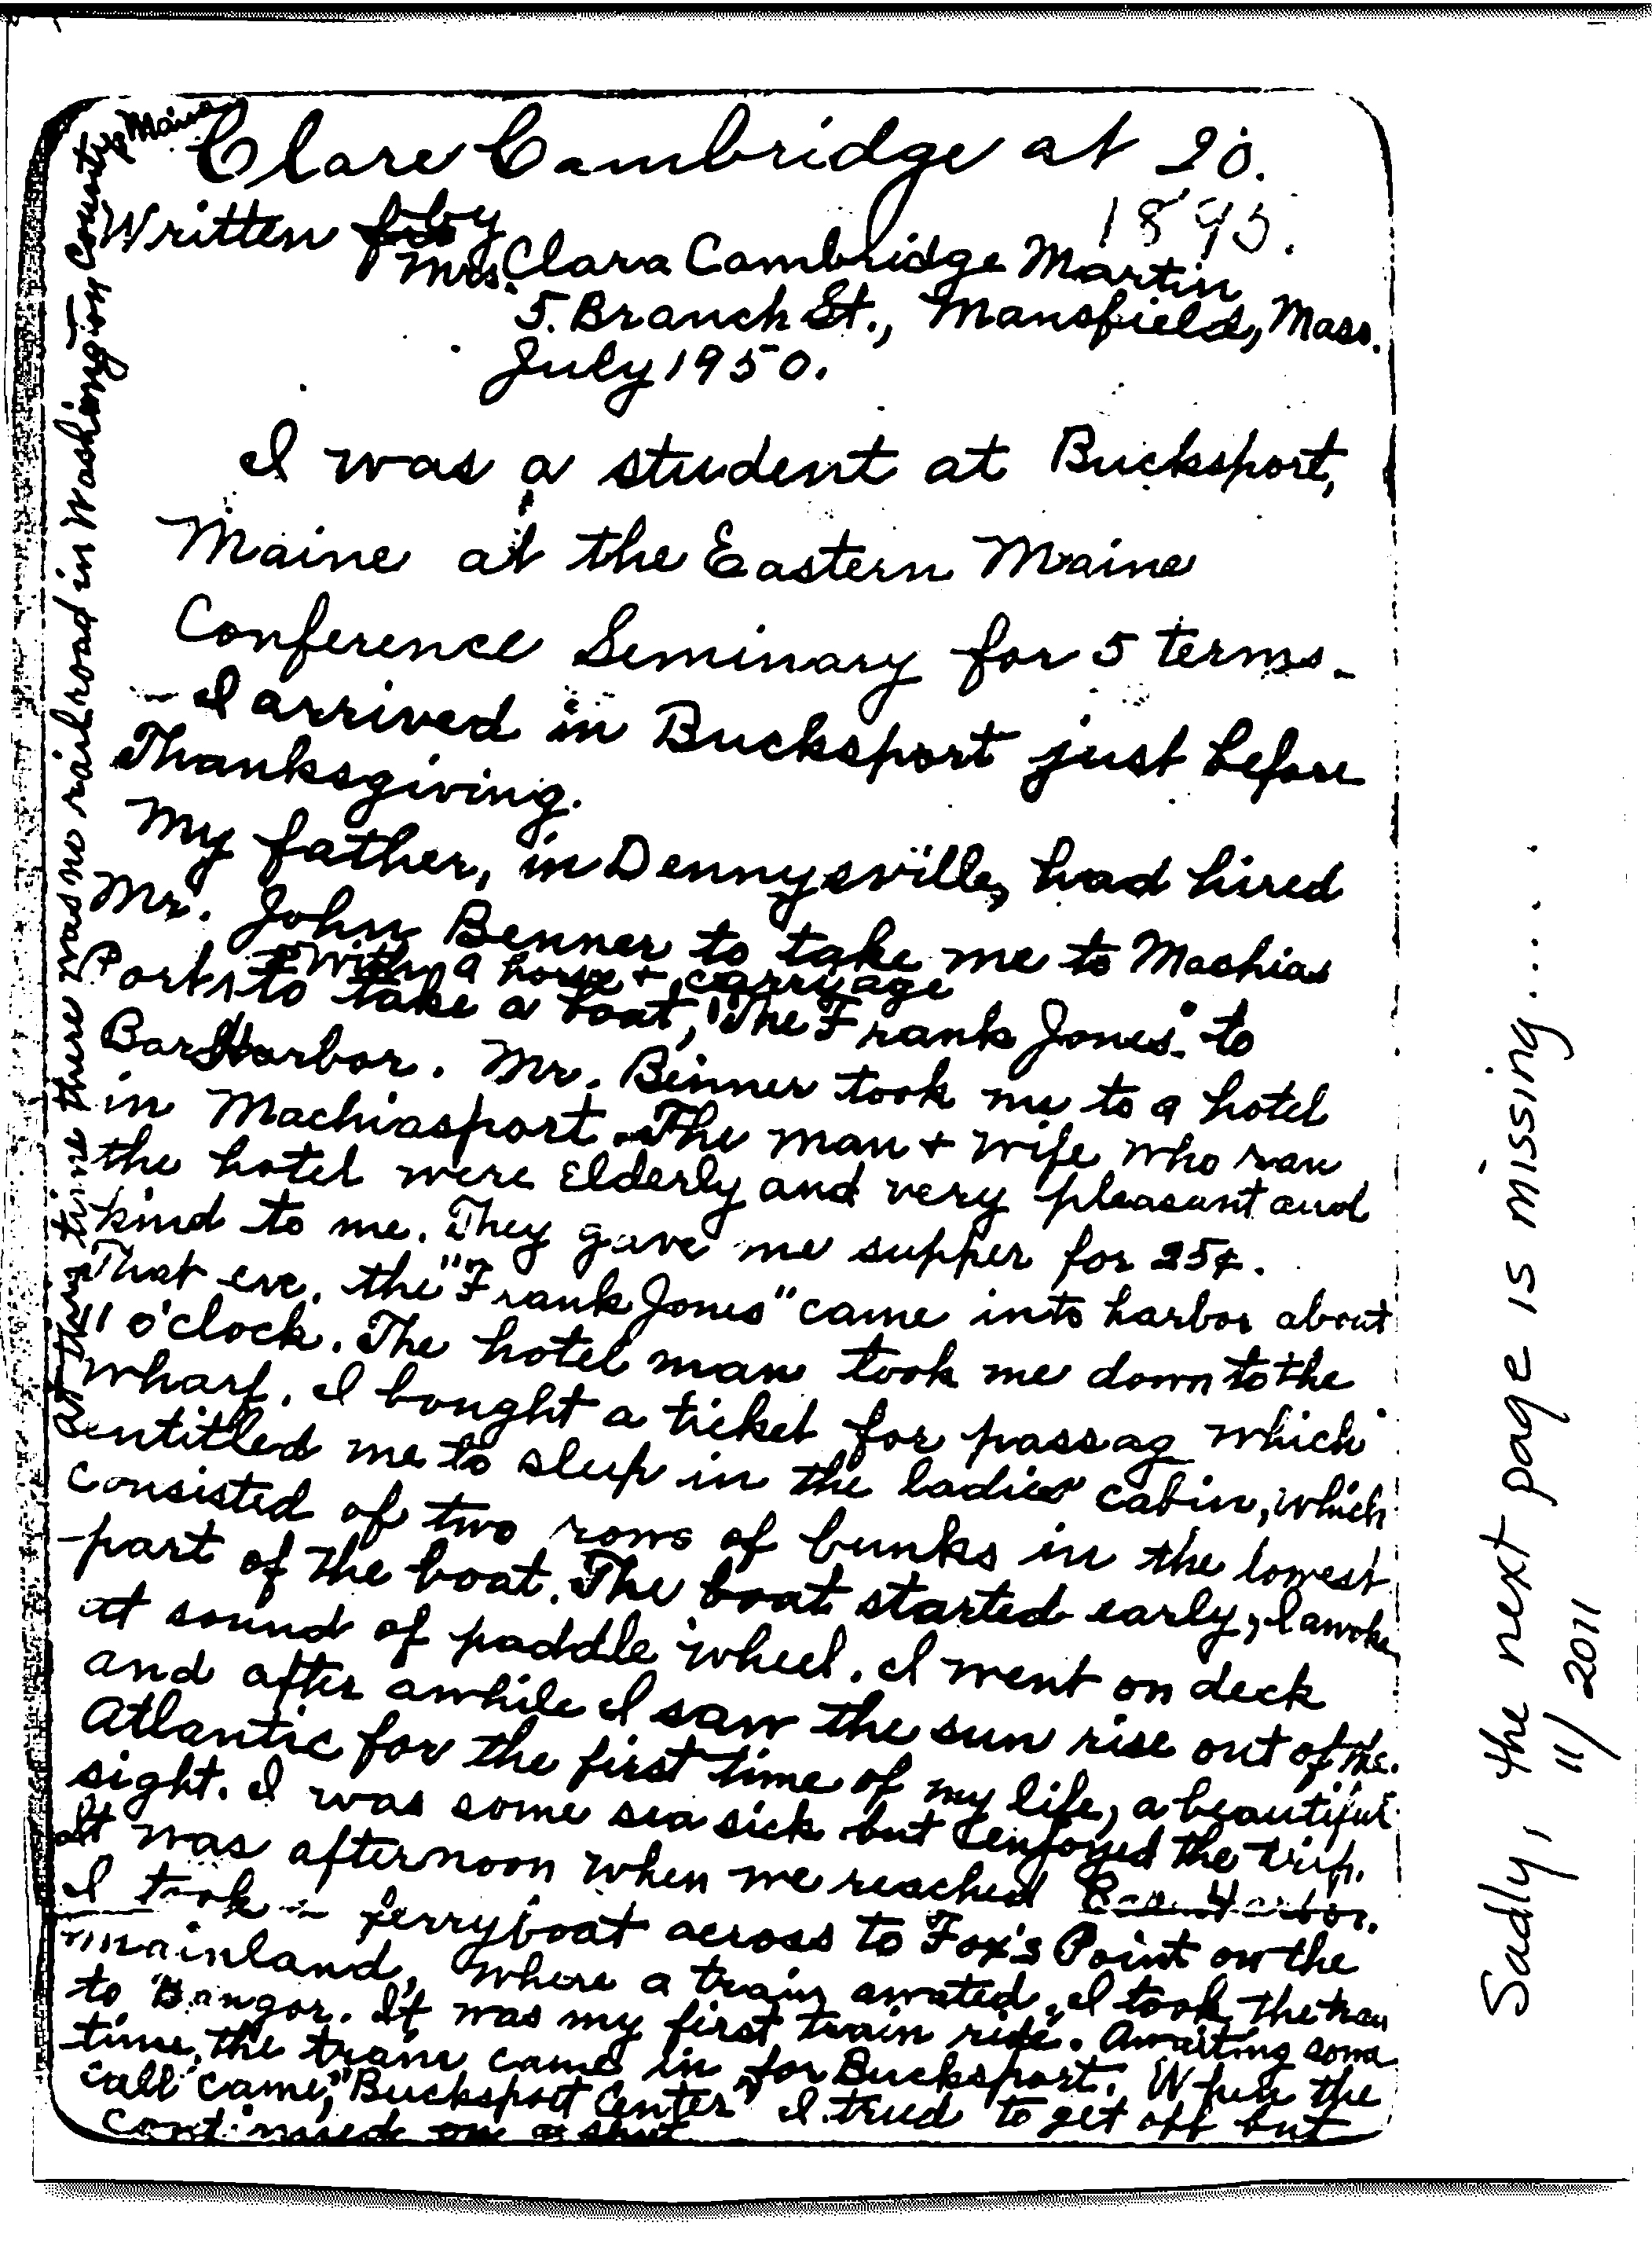 Clare Cambridge at 20.
1895.
Written by
Mrs. Clara Cambridge Martin
5. Branch St., Mansfield, Mass.
July 1950.
I was a student at Bucksport,
Maine at the Eastern Maine
Conference Seminary for 5 terms.
- I arrived in Bucksport just before
Thanksgiving.
My father, in Dennysville, had hired
Mr. John Benner to take me to Machias
with a horse & carriage
Port, to take a boat, "The Frank Jones" to
Bar Harbor. Mr. Benner took me to a hotel
in Machiasport. The man & wife who ran
the hotel were elderly and very pleasant and
kind to me. They gave me supper for 25¢.
That eve. the "Frank Jones" came into harbor about
11 o'clock. The hotel man took me down to the
wharf. I bought a ticket for passag which
entitled me to sleep in the ladies' cabin, which
consisted of two rows of bunks in the lowest
part of the boat. The boat started early, I awoke
at sound of paddle wheel. I went on deck
and after awhile I saw the sun rise out of the
Atlantic for the first time of my life, a beautiful
sight. I was some sea sick but I enjoyed the trip.
It was afternoon when we reached Bar Harbor.
I took a ferryboat across to Fox's Point on the
mainland, where a train awated. I took the train
to Bangor. It was my first train ride. Awaiting some
time, the train came in for Bucksport. When the
call came, "Bucksport Center" I tried to get off but
continued on a sheet
At this time there was no railroad in Washington County, Maine
Sadly, the next page is missing....
11/2011